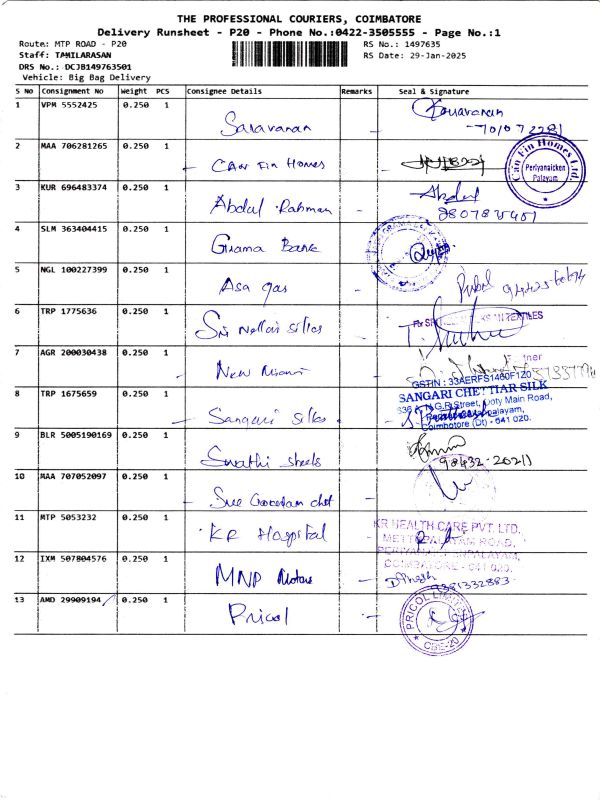 THE PROFESSIONAL COURIERS, COIMBATORE
Delivery Runsheet - P20 - Phone No.:0422-3505555 - Page No.:1
Route: MTP ROAD - P20 RS No.: 1497635
Staff: TAMILARASAN RS Date: 29-Jan-2025
DRS No.: DCJB149763501
Vehicle: Big Bag Delivery
S No Consignment No Weight PCS Consignee Details Remarks Seal & Signature
1 VPM 5552425 0.250 1 Saravanan Saravanan
2 MAA 706281265 0.250 1 Can Fin Homes Can Fin Homes Ltd. Periyanaicken Palayam
3 KUR 696483374 0.250 1 Abdul Rahman Abdul
4 SLM 363404415 0.250 1 Grama Bank
5 NGL 100227399 0.250 1 Asa gas
6 TRP 1775636 0.250 1 Sri Nellai silks
7 AGR 200030438 0.250 1 New
GSTIN : 33AERFS1460F1Z0
8 TRP 1675659 0.250 1 Sangari silks SANGARI CHETTIAR SILK
N.G.R. Street, Ooty Main Road,
Coimbatore (Dt) - 641 020.
9 BLR 5005190169 0.250 1 Swathi steels
10 MAA 707052097 0.250 1 Sree
11 MTP 5053232 0.250 1 KR Hospital KR HEALTH CARE PVT. LTD.
METTUPALAYAM ROAD,
COIMBATORE - 641 020.
12 IXM 507804576 0.250 1 MNP Motors 9381332883
13 AMD 29909194 0.250 1 Pricol PRICOL LIMITED CBE-20